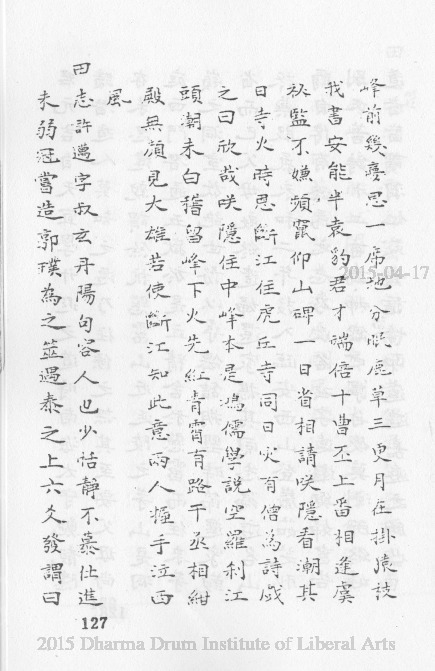 峰前幾度思一席地分眠鹿草三更月在掛猿枝
我書安能半袁豹君才端倍十曹丕上番相逢虞
秘監不嫌頻竄仰山碑一日省相請咲隱看潮其
日寺火時恩斷江住虎丘寺同日火有僧為詩戲
之曰欣哉咲隱住中峰本是鴻儒學說空羅剎江
頭潮未白稽留峰下火先紅青霄有路干丞相紺
殿無顏見大雄若使斷江知此意兩人握手泣西
風
田志許邁字叔玄丹陽句容人也少恬靜不慕仕進
未弱冠嘗造郭璞為之筮遇泰之上六爻發謂曰
127
2015-04-17
2015 Dharma Drum Institute of Liberal Arts